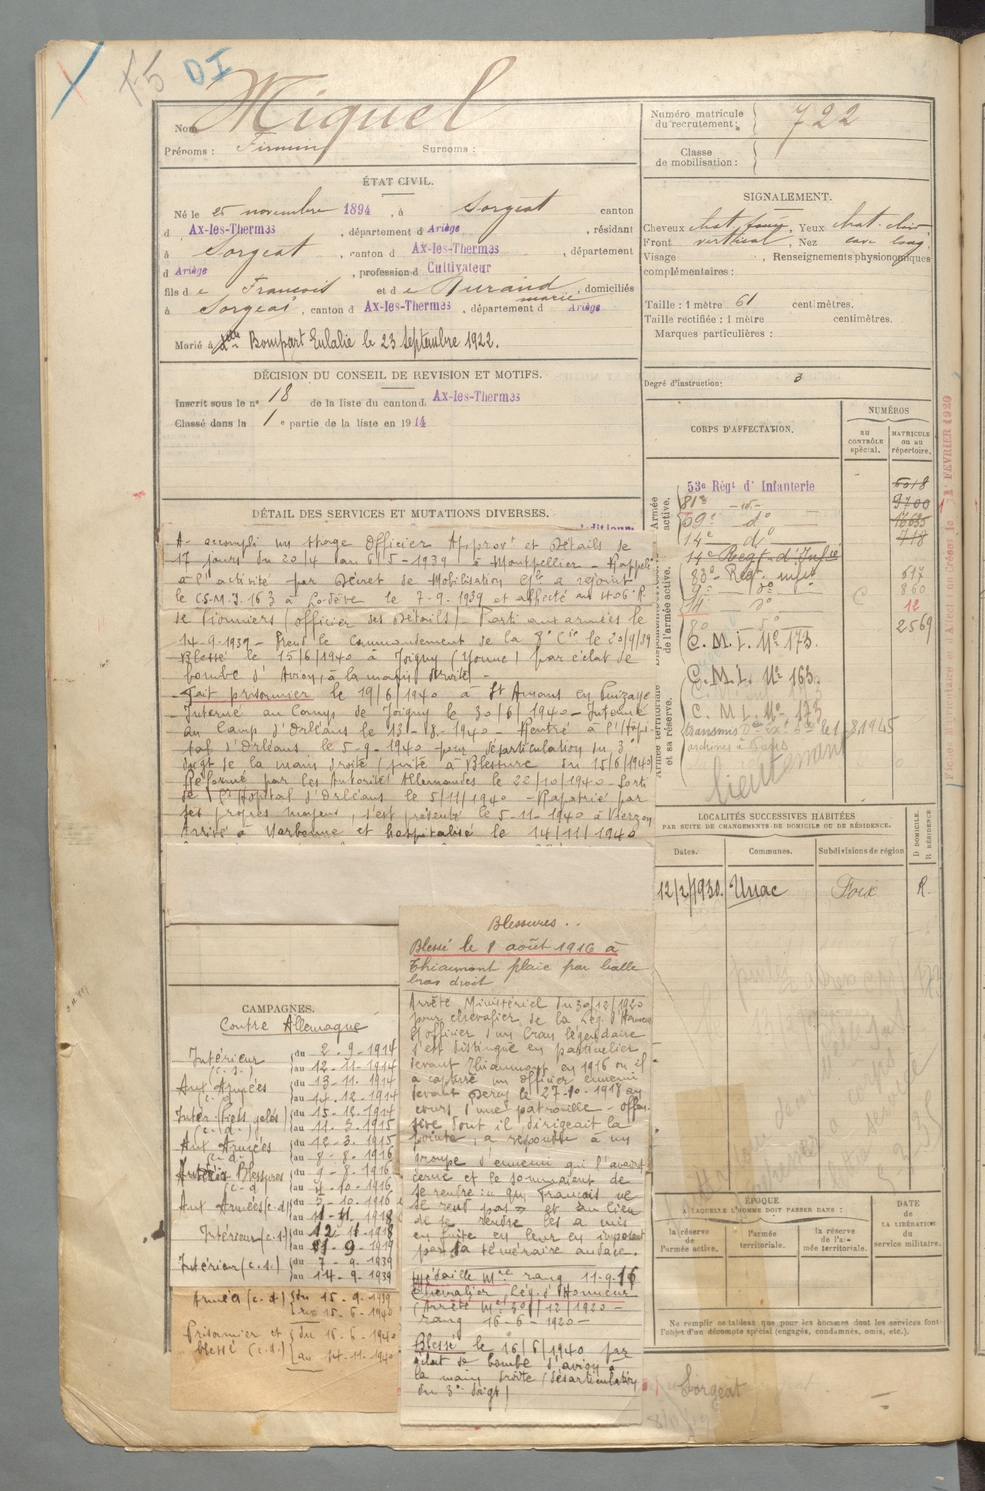 f5 DI
Nom Miquel
Prénoms : Firmin Surnoms :
ÉTAT CIVIL.
Né le 25 novembre 1894, à Sorgeat canton
d Ax-les-Thermes, département d Ariège, résidant
à Sorgeat, canton d Ax-les-Thermes, département
d Ariège, profession d Cultivateur
fils de François et de Durand, domiciliés
marie
à Sorgeat, canton d Ax-les-Thermes, département d Ariège
Marié à Bompart Eulalie le 23 Septembre 1922.
DÉCISION DU CONSEIL DE REVISION ET MOTIFS.
Inscrit sous le n° 18 de la liste du canton d Ax-les-Thermes
Classé dans la 1 e partie de la liste en 1914
DÉTAIL DES SERVICES ET MUTATIONS DIVERSES.
A accompli un stage Officier Approvt et Détails de
17 jours du 20/4 au 6/5-1939 à Montpellier - Rappelé
à l'activité par Décret de Mobilisation Gle a rejoint
le CS.M.I. 163 à Lodève le 7-9-1939 et affecté au 406e R.
de Pionniers (officier des Détails) - Parti aux armées le
14-9-1939 - Prend le Commandement de la 8e Cie le 20/9/39
Blessé le 15/6/1940 à Joigny (Yonne) par éclat de
bombe d'Avion, à la main droite -
Fait prisonnier le 19/6/1940 à St Amans en Puizaye
Interné au Camp de Joigny le 30/6/1940 - Interné
au Camp d'Orléans le 13-8-1940 - Rentré à l'Hôpi
tal d'Orléans le 5-9-1940 pour désarticulation du 3
doigt de la main droite (suite à Blessure du 15/6/1940)
Réformé par les Autorités Allemandes le 22/10/1940 - Sorti
de l'Hopital d'Orléans le 5/11/1940 - Rapatrié par
ses propres moyens, s'est présenté le 5-11-1940 à Vierzon
Arrivé à Narbonne et hospitalisé le 14/11/1940
CAMPAGNES.
Contre Allemagne
Intérieur (c.s.) du 2-9-1914
au 12-11-1914
Aux Armées (c.d) du 13-11-1914
au 14-12-1914
Intér Pieds gelés (c.d.) du 15-12-1914
au 11-3-1915
Aux Armées (c.d.) du 12-3-1915
au 8-8-1916
Intér Blessures (c.d) du 9-8-1916
au 4-10-1916
Aux Armées (c.d) du 5-10-1916
au 11-11-1918
Intérieur (c.s) du 12-11-1918
au 9-1919
Intérieur (c.s.) du 7-9-1939
au 14-9-1939
Armées (c.d) du 15-9-1939
au 15-6-1940
Prisonnier et blessé (c.d.) du 16-6-1940
au 14-11-1940
Blessures..
Blessé le 8 août 1916 à
Thiaumont plaie par balle
bras droit
Arrêté Ministériel du 30/12/1920
pour chevalier de la Lég. d'Honneur
officier d'un Cran légendaire
s'est distingué en particulier
devant Thiaumont en 1916 où il
a capturé un officier ennemi
devant Dercy le 27-10-1918 au
cours d'une patrouille - offen
sive dont il dirigeait la
pointe, a répondu à un
groupe d'ennemi qui l'avait
cerné et le sommaient de
se rendre : « un Français ne
se rend pas » et au lieu
de se rendre les a mis
en fuite en leur en imposant
par sa téméraire audace.
Médaille Mre rang 11-9-16
Chevalier Lég. d'Honneur
(Arrêté Mel 30/12/1920 -
rang 16-6-1920 -
Blessé le 15/6/1940 par
éclat de bombe d'avion à
la main droite (désarticulation
du 3e doigt)
Numéro matricule du recrutement : 722
Classe de mobilisation :
SIGNALEMENT.
Cheveux chat. foncé, Yeux chat. clair
Front vertical, Nez cave long.
Visage , Renseignements physionomiques
complémentaires :
Taille : 1 mètre 61 centimètres.
Taille rectifiée : 1 mètre centimètres.
Marques particulières :
Degré d'instruction : 3
CORPS D'AFFECTATION.
NUMÉROS
AU CONTRÔLE spécial.
MATRICULE ou au répertoire.
Armée active.
53e Régt d'Infanterie 5018
81e -id- 9700
59e do 16635
14e do 718
14e Regt d'Infie
Disponibilité et réserve de l'armée active.
83e Regt infie 617
9e do 860
14 do C 12
80 do 2569
C.M.I. No 173.
C.M.I. No 163.
C.M.I. No 173
Armée territoriale et sa réserve.
archives à Paris
8.1945
lieutenant
LOCALITÉS SUCCESSIVES HABITÉES
PAR SUITE DE CHANGEMENTS DE DOMICILE OU DE RÉSIDENCE.
D DOMICILE. R RÉSIDENCE
Dates. Communes. Subdivisions de région
12/2/1930. Unac Foix R.
ÉPOQUE
À LAQUELLE L'HOMME DOIT PASSER DANS :
la réserve de l'armée active.
l'armée territoriale.
la réserve de l'armée territoriale.
DATE de LA LIBÉRATION du service militaire.
Ne remplir ce tableau que pour les hommes dont les services font
l'objet d'un décompte spécial (engagés, condamnés, omis, etc.).
Sorgeat